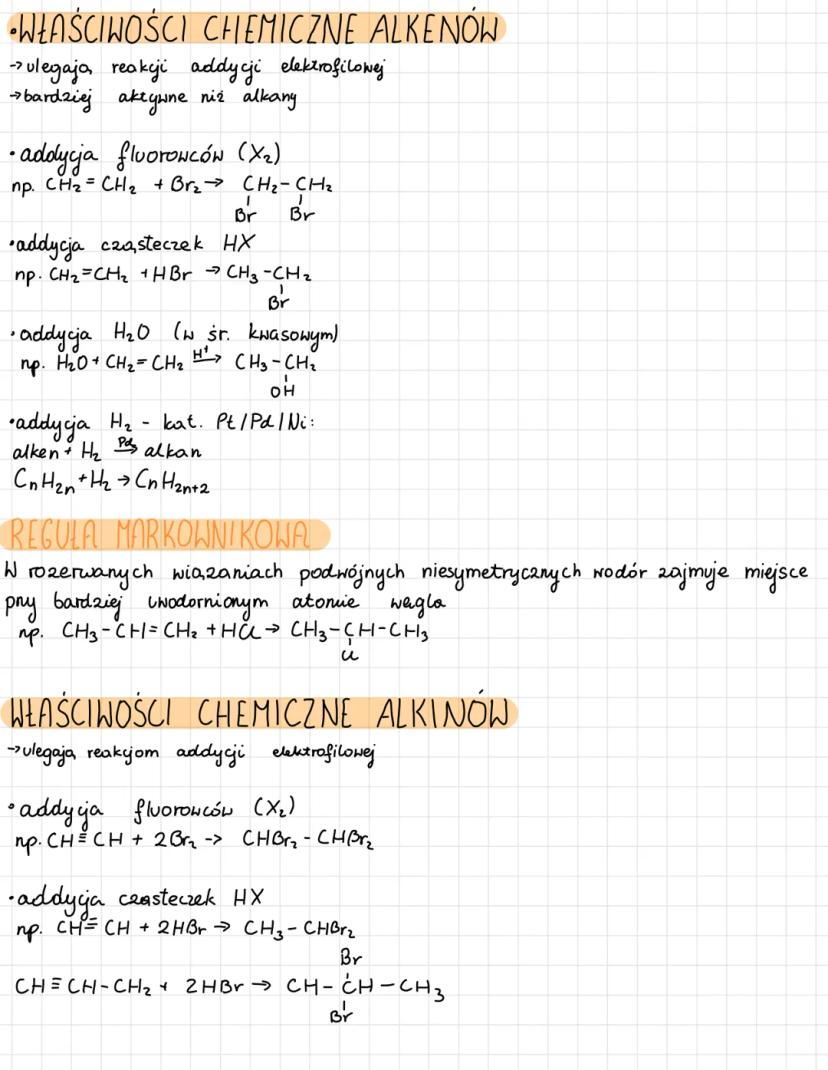 •WŁAŚCIWOŚCI CHEMICZNE ALKENÓW
→ulegają reakcji addycji elektrofilowej
→bardziej aktywne niż alkany
•addycja fluorowców (X₂)
np. CH₂=CH₂ + Br₂→ CH₂-CH₂
Br Br
•addycja cząsteczek HX
np. CH₂=CH₂ +HBr →CH₃-CH₂
Br
•addycja H₂O (w śr. kwasowym)
np. H₂O+CH₂=CH₂ H⁺→ CH₃-CH₂
OH
•addycja H₂ - kat. Pt/Pd/Ni:
alken+ H₂ Pd→ alkan
CnH2n+H₂→CnH2n+2
REGUŁA MARKOWNIKOWA
W rozerwanych wiązaniach podwójnych niesymetrycznych wodór zajmuje miejsce
przy bardziej uwodornionym atomie węgla
np. CH₃-CH=CH₂ +HCl→ CH₃-CH-CH₃
Cl
WŁAŚCIWOŚCI CHEMICZNE ALKINÓW
→ulegają reakcjom addycji elektrofilowej
•addycja fluorowców (X₂)
np. CH≡CH + 2Br₂ -> CHBr₂-CHBr₂
•addycja cząsteczek HX
np. CH≡CH + 2HBr → CH₃-CHBr₂
Br
CH≡CH-CH₂ + 2HBr → CH-CH-CH₃
Br